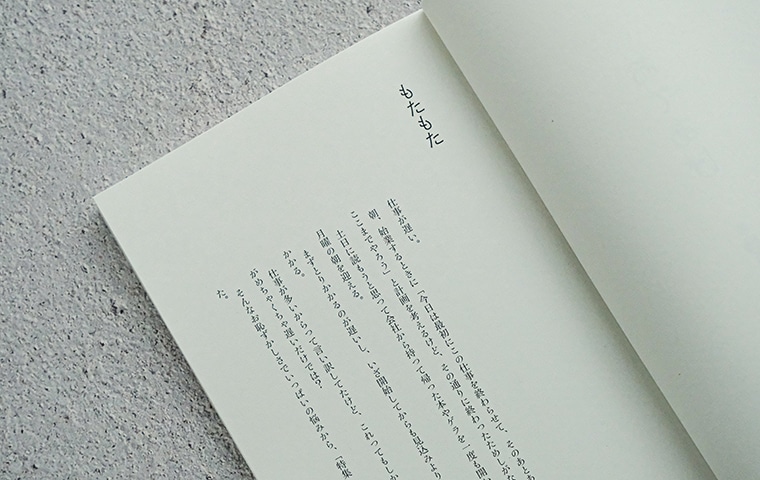 もたもた
仕事が遅い。
朝、始業するときに「今日は最初にこの仕事を終わらせて、そのあとあ
ここまでやろう」と計画を考えるけど、その通りに終わったためしがな
土日に読もうと思って会社から持って帰った本やゲラを一度も開い
月曜の朝を迎える。
まずとりかかるのが遅いし、いざ開始してからも見込みより
かかる。
仕事が多いからって言い訳してたけど、これってもしか
がめちゃくちゃ遅いだけでは？
そんなお恥ずかしさでいっぱいの悩みから、「特集
た。